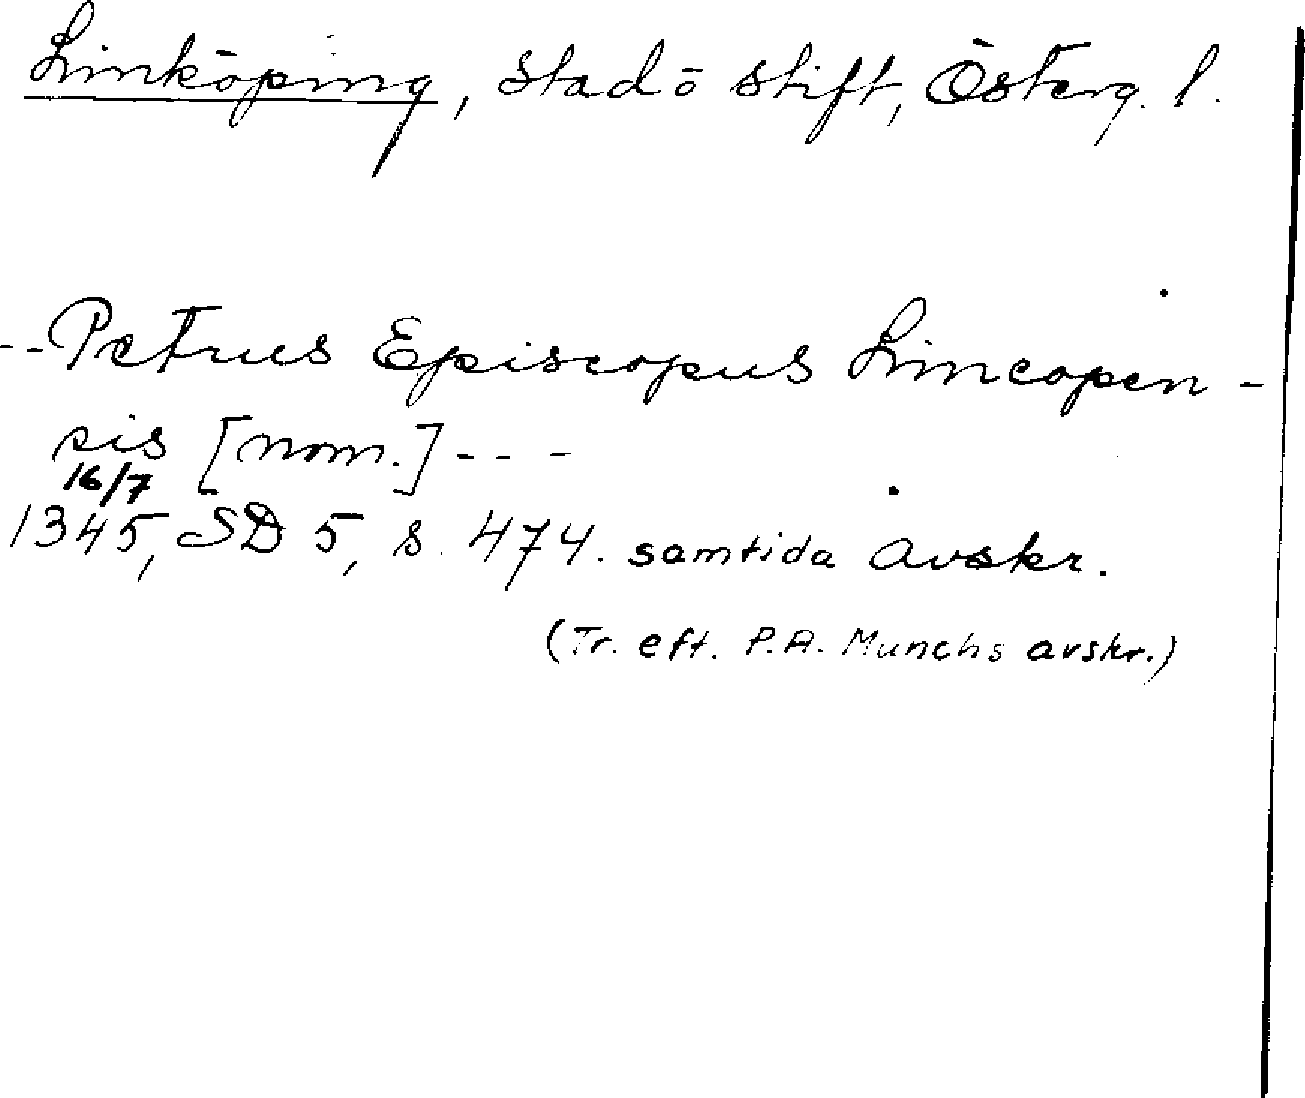 Linköping, stad o stift, Österg. l.
--Petrus Episcopus Lincopen-
sis [nom.]---
16/7
1345, SD 5, s. 474. samtida avskr.
(Tr. eft. P.A. Munchs avskr.)